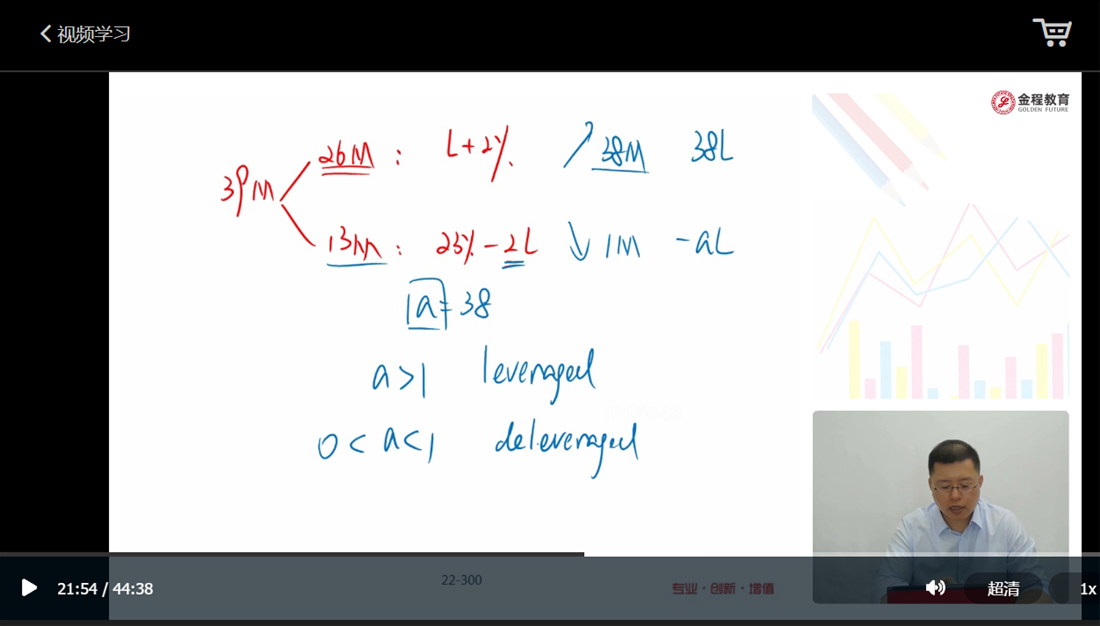 视频学习
金程教育
GOLDEN FUTURE
39M
26M : L+2%. ↗ 38M 38L
13M : 25%-2L ↓ 1M -aL
a = 38
a>1 leveraged
0<a<1 deleveraged
21:54 / 44:38
22-300
专业·创新·增值
超清
1x